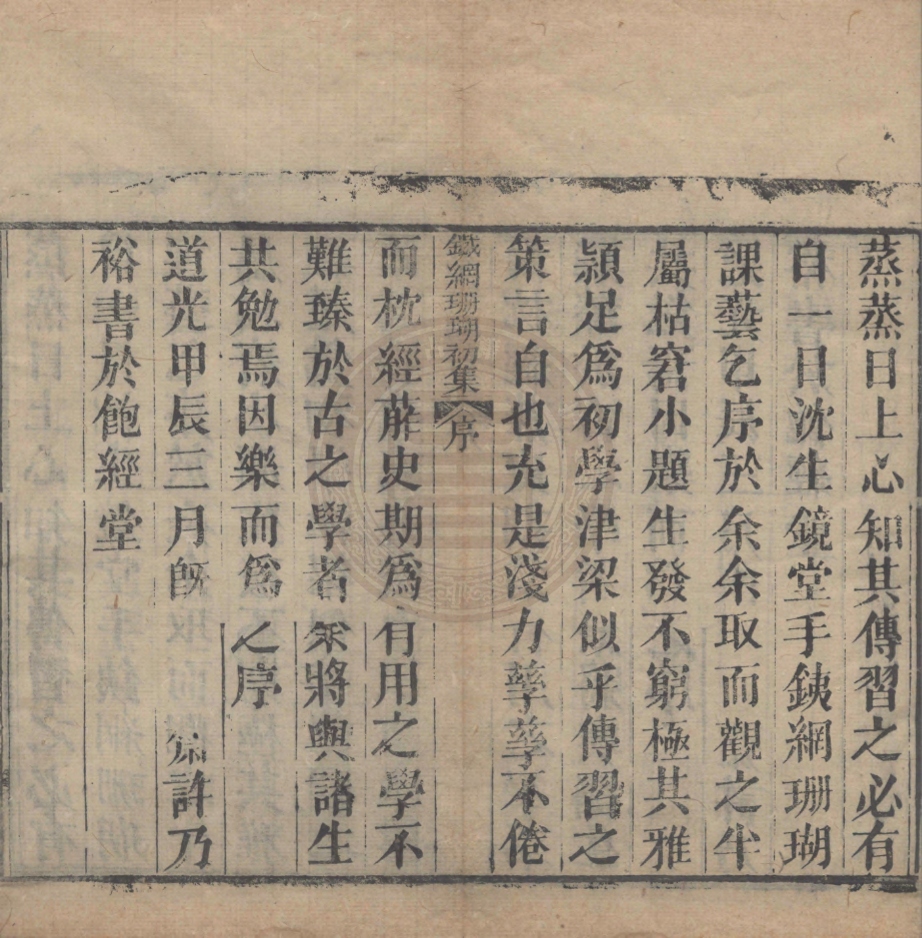 蒸蒸日上心知其傳習之必有
自一日沈生鏡堂手銕網珊瑚
課藝乞序於余余取而觀之半
屬枯窘小題生發不窮極其雅
潁足爲初學津梁似乎傳習之
策言自也充是淺力孳孳不倦
鐵網珊瑚初集 序
而枕經葄史期爲有用之學不
難臻於古之學者余將與諸生
共勉焉因樂而爲之序
道光甲辰三月既 許乃
裕書於飽經堂